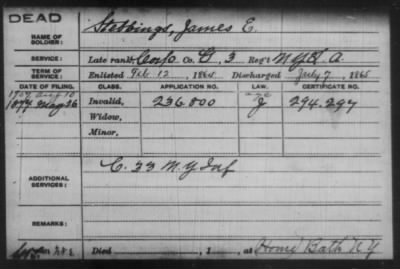 DEAD
NAME OF SOLDIER: Stebbings, James E.
SERVICE: Late rank Corp Co. G. 3 Reg't N.Y.L.A.
TERM OF SERVICE: Enlisted Feb. 12, 1865 Discharged July 7, 1865
DATE OF FILING. CLASS. APPLICATION NO. LAW. CERTIFICATE NO.
1877 May 26 Invalid, 236.800 J 294.297
Widow,
Minor,
ADDITIONAL SERVICES: C. 33 N.Y. Inf
REMARKS:
Died , 1 , at Home Bath N.Y.